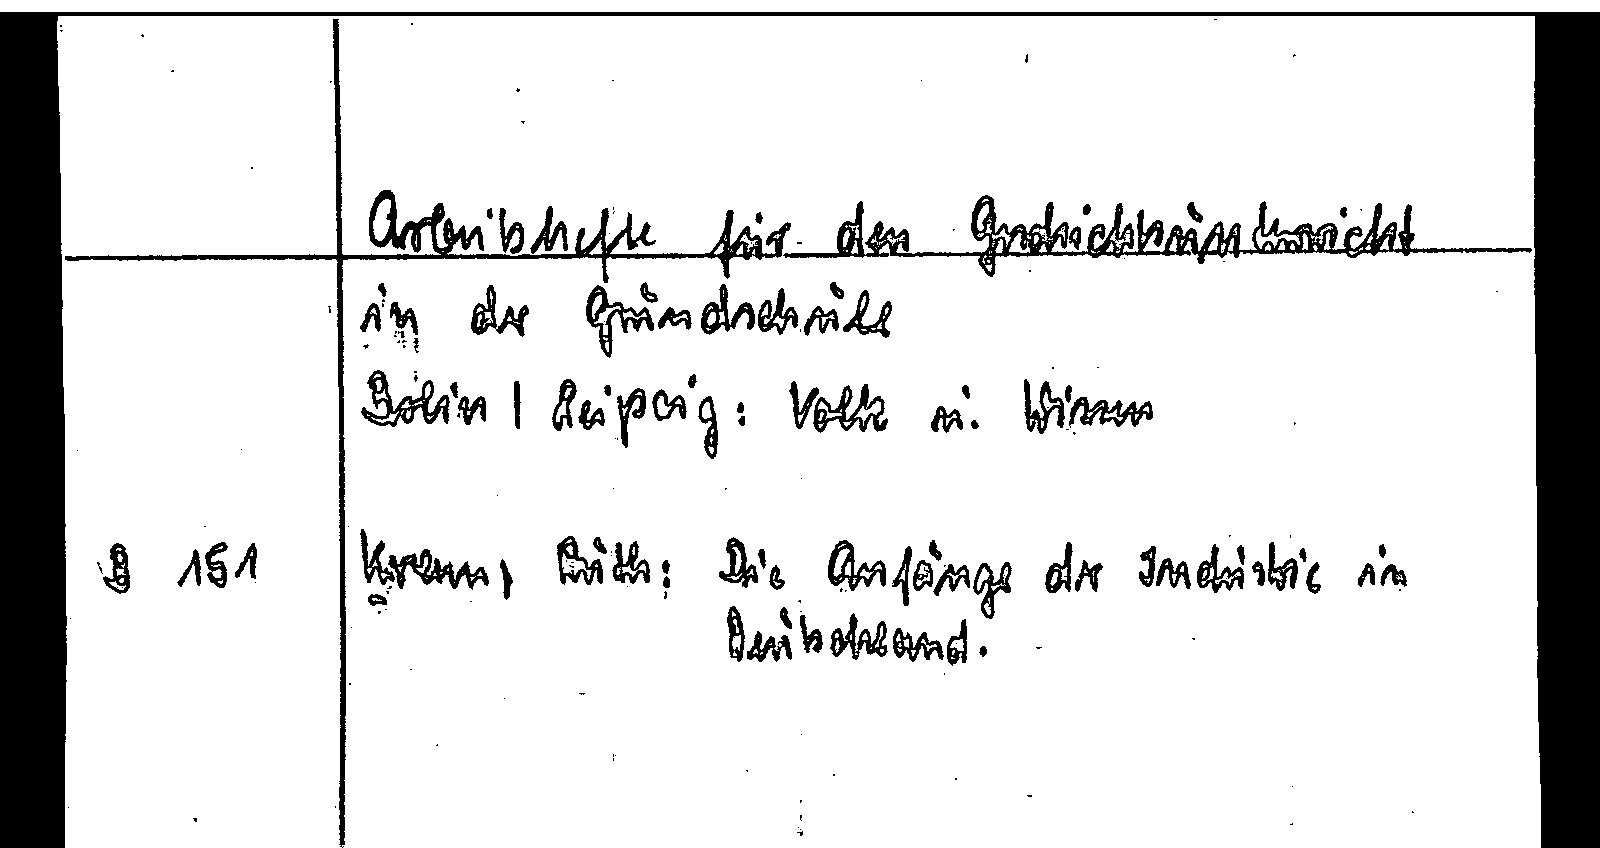 Arbeitshefte für den Geschichtsunterricht
in der Grundschule
Berlin / Leipzig: Volk u. Wissen
B 151 Ruth: Die Anfänge der Industrie in
Deutschland.